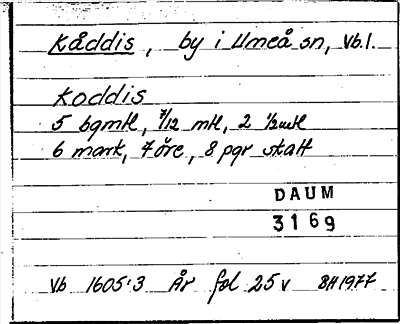 Kåddis, by i Umeå sn, Vb.l.
Koddis
5 bgmtl, 7/12 mtl, 2 1/2mtl
6 mark, 7 öre, 8 pgr skatt
DAUM
3169
Vb 1605:3 År fol 25 v BH1977